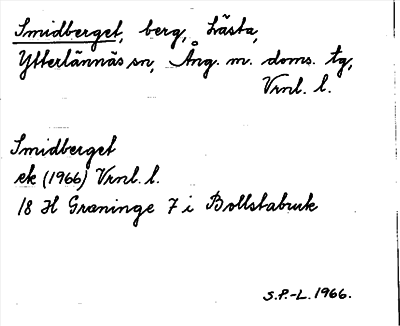 Smidberget, berg, Lästa,
Ytterlännäs sn, Ång. m. doms. tg,
Vrnl. l.
Smidberget
ek (1966) Vrnl. l.
18 H Graninge 7 i Bollstabruk
S.P.-L. 1966.